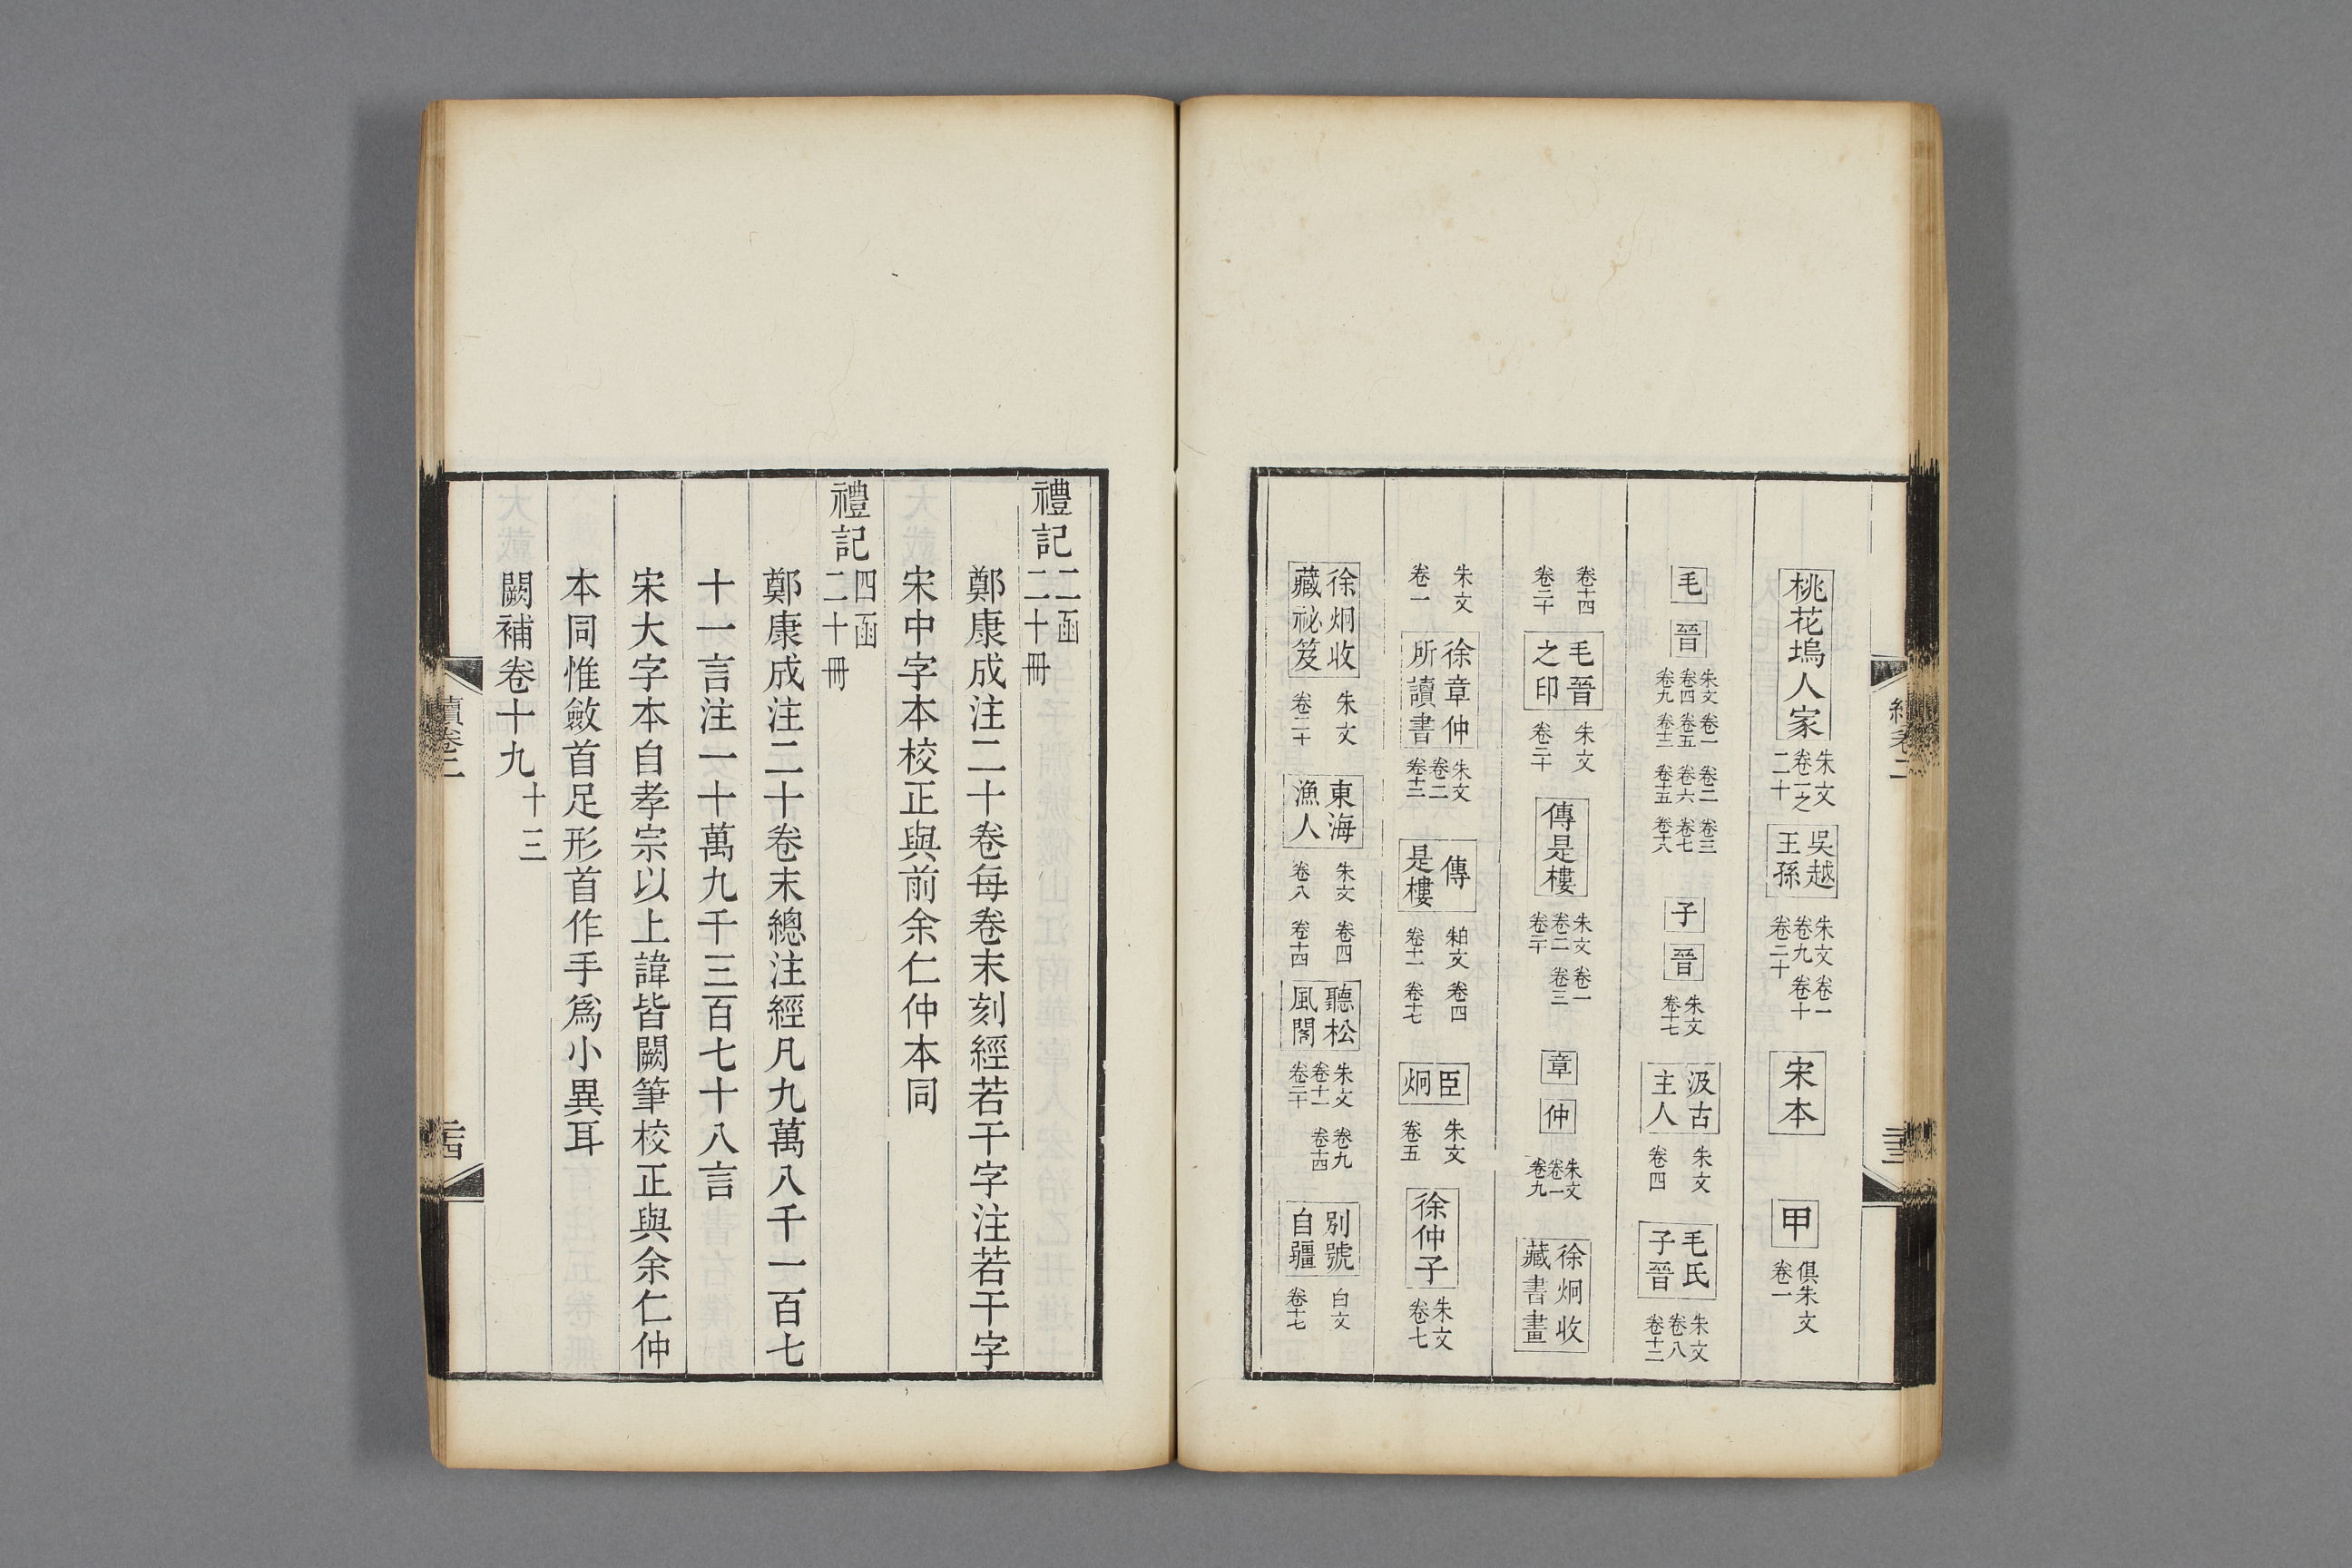 桃花塢人家 朱文 卷一之二十 吳越王孫 朱文 卷一 卷九 卷十 卷二十 宋本 甲 俱朱文 卷一
毛 晉 朱文 卷一 卷二 卷三 卷四 卷五 卷六 卷七 卷九 卷十三 卷十五 卷十六 子 晉 朱文 卷十七 汲古主人 朱文 卷四 毛氏子晉 朱文 卷八 卷十二
卷十四 卷二十 毛晉之印 朱文 卷二十 傳是樓 朱文 卷一 卷二 卷三 卷二十 章 仲 朱文 卷一 卷九 徐炯收藏書畫
朱文 卷一 徐章仲所讀書 朱文 卷二 卷十二 傳是樓 朱白文 卷四 卷十一 卷十七 臣炯 朱文 卷五 徐仲子 朱文 卷七
徐炯收藏祕笈 朱文 卷二十 東海漁人 朱文 卷四 卷八 卷十四 聽松風閣 朱文 卷九 卷十一 卷十四 卷二十 別號自疆 白文 卷十七
禮記 二函 二十冊
鄭康成注二十卷每卷末刻經若干字注若干字
宋中字本校正與前余仁仲本同
禮記 四函 二十冊
鄭康成注二十卷末總注經凡九萬八千一百七
十一言注一十萬九千三百七十八言
宋大字本自孝宗以上諱皆闕筆校正與余仁仲
本同惟斂首足形首作手爲小異耳
闕補卷十九 十三
續卷二